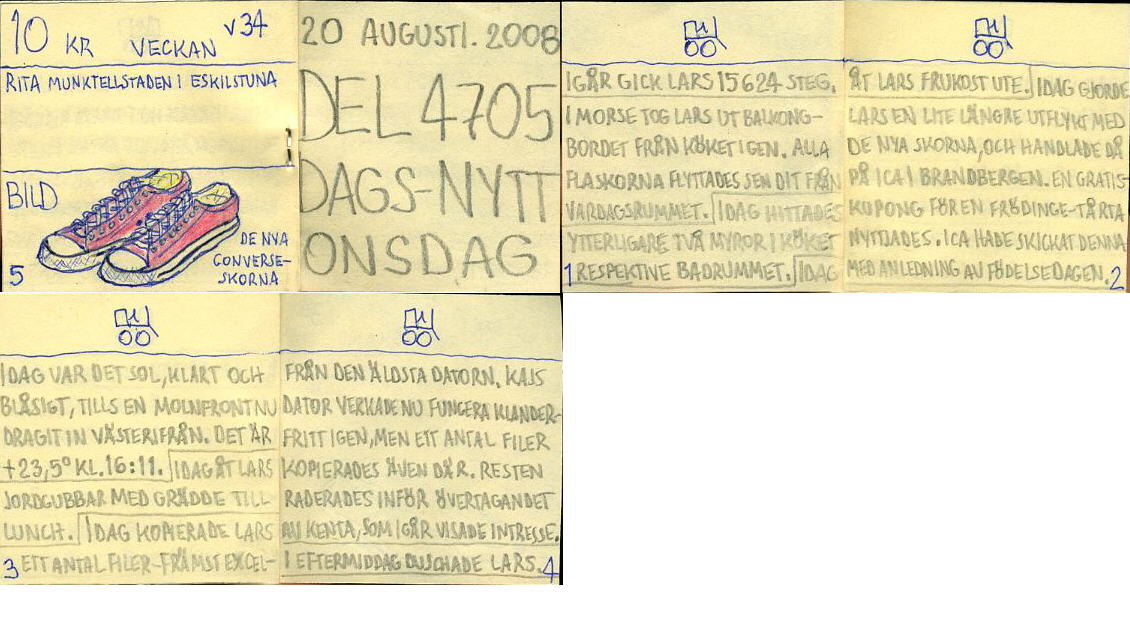 10 KR VECKAN V34
RITA MUNKTELLSTADEN I ESKILSTUNA
BILD
DE NYA
CONVERSE-
SKORNA
5
20 AUGUSTI. 2008
DEL 4705
DAGS-NYTT
ONSDAG
IGÅR GICK LARS 15624 STEG.
I MORSE TOG LARS UT BALKONG-
BORDET FRÅN KÖKET IGEN. ALLA
FLASKORNA FLYTTADES SEN DIT FRÅN
VARDAGSRUMMET. IDAG HITTADES
YTTERLIGARE TVÅ MYROR I KÖKET
RESPEKTIVE BADRUMMET. IDAG
1
ÅT LARS FRUKOST UTE. IDAG GJORDE
LARS EN LITE LÄNGRE UTFLYKT MED
DE NYA SKORNA, OCH HANDLADE DÅ
PÅ ICA I BRANDBERGEN. EN GRATIS-
KUPONG FÖR EN FRÖDINGE-TÅRTA
NYTTJADES. ICA HADE SKICKAT DENNA
MED ANLEDNING AV FÖDELSEDAGEN.
2
IDAG VAR DET SOL, KLART OCH
BLÅSIGT, TILLS EN MOLNFRONT NU
DRAGIT IN VÄSTERIFRÅN. DET ÄR
+23,5° KL. 16:11. IDAG ÅT LARS
JORDGUBBAR MED GRÄDDE TILL
LUNCH. IDAG KOPIERADE LARS
ETT ANTAL FILER-FRÄMST EXCEL-
3
FRÅN DEN ÄLDSTA DATORN. KAJS
DATOR VERKADE NU FUNGERA KLANDER-
FRITT IGEN, MEN ETT ANTAL FILER
KOPIERADES ÄVEN DÄR. RESTEN
RADERADES INFÖR ÖVERTAGANDET
AV KENTA, SOM IGÅR VISADE INTRESSE.
I EFTERMIDDAG DUSCHADE LARS.
4